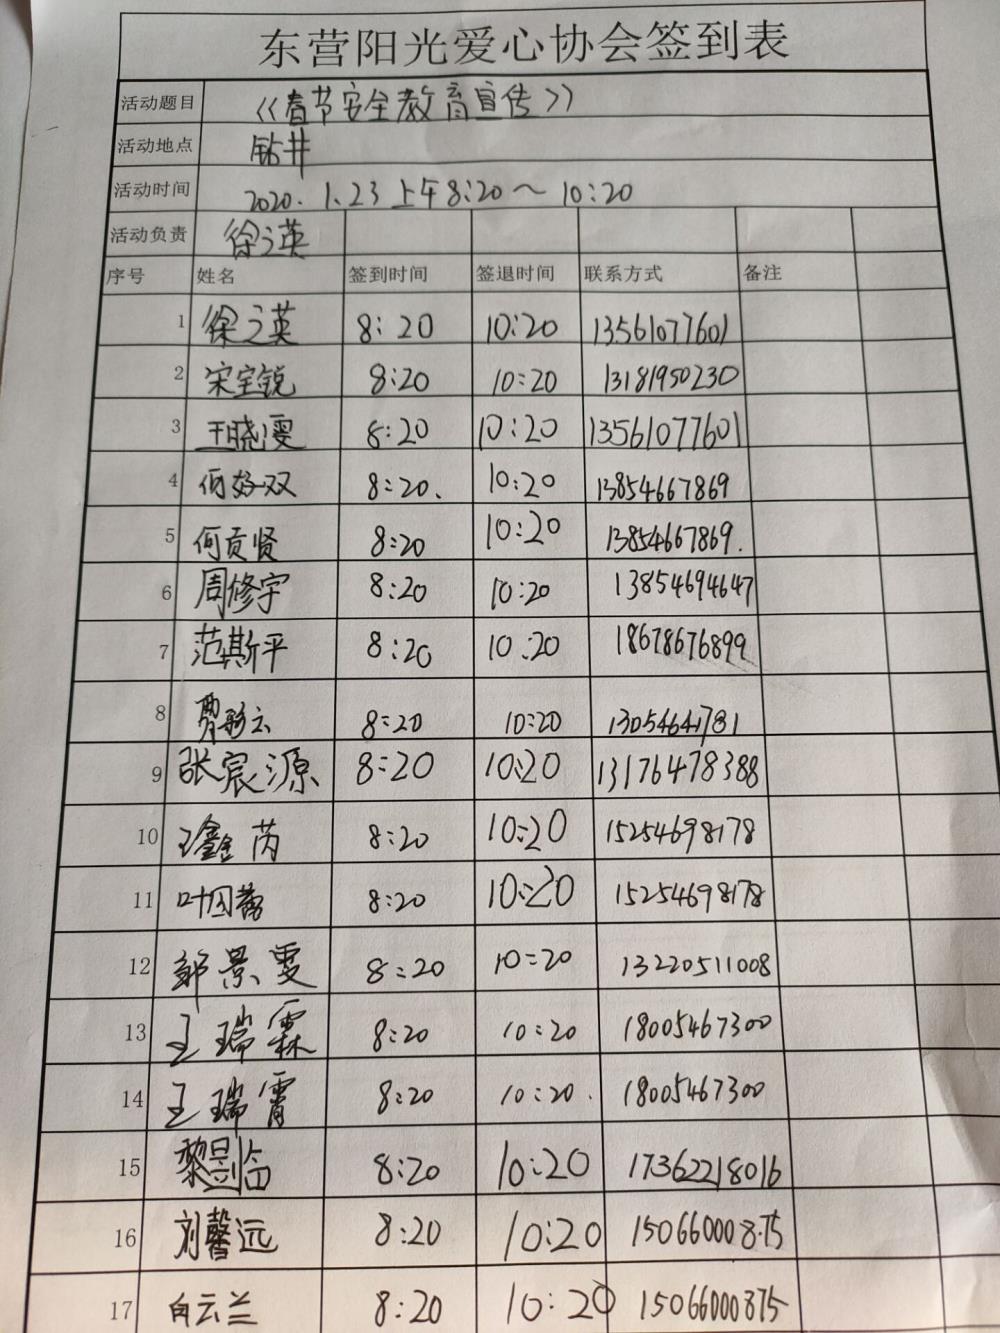 东营阳光爱心协会签到表
活动题目 《春节安全教育宣传》
活动地点 钻井
活动时间 2020.1.23上午8:20~10:20
活动负责 徐之英
序号 姓名 签到时间 签退时间 联系方式 备注
1 徐之英 8:20 10:20 13561077601
2 宋宝锐 8:20 10:20 13181950230
3 王晓雯 8:20 10:20 13561077601
4 何好双 8:20. 10:20 13854667869
5 何贡贤 8:20 10:20 13854667869.
6 周修宇 8:20 10:20 13854694647
7 范斯平 8:20 10:20 18678676899
8 贾彩云 8:20 10:20 13054641781
9 张宸源 8:20 10:20 13176478388
10 王鑫芮 8:20 10:20 15254698178
11 叶国 8:20 10:20 15254698178
12 景雯 8:20 10:20 13220511008
13 王瑞霖 8:20 10:20 18005467300
14 王瑞霄 8:20 10:20. 18005467300
15 黎 8:20 10:20 17362218016
16 刘馨远 8:20 10:20 15066000875
17 白云兰 8:20 10:20 15066000875